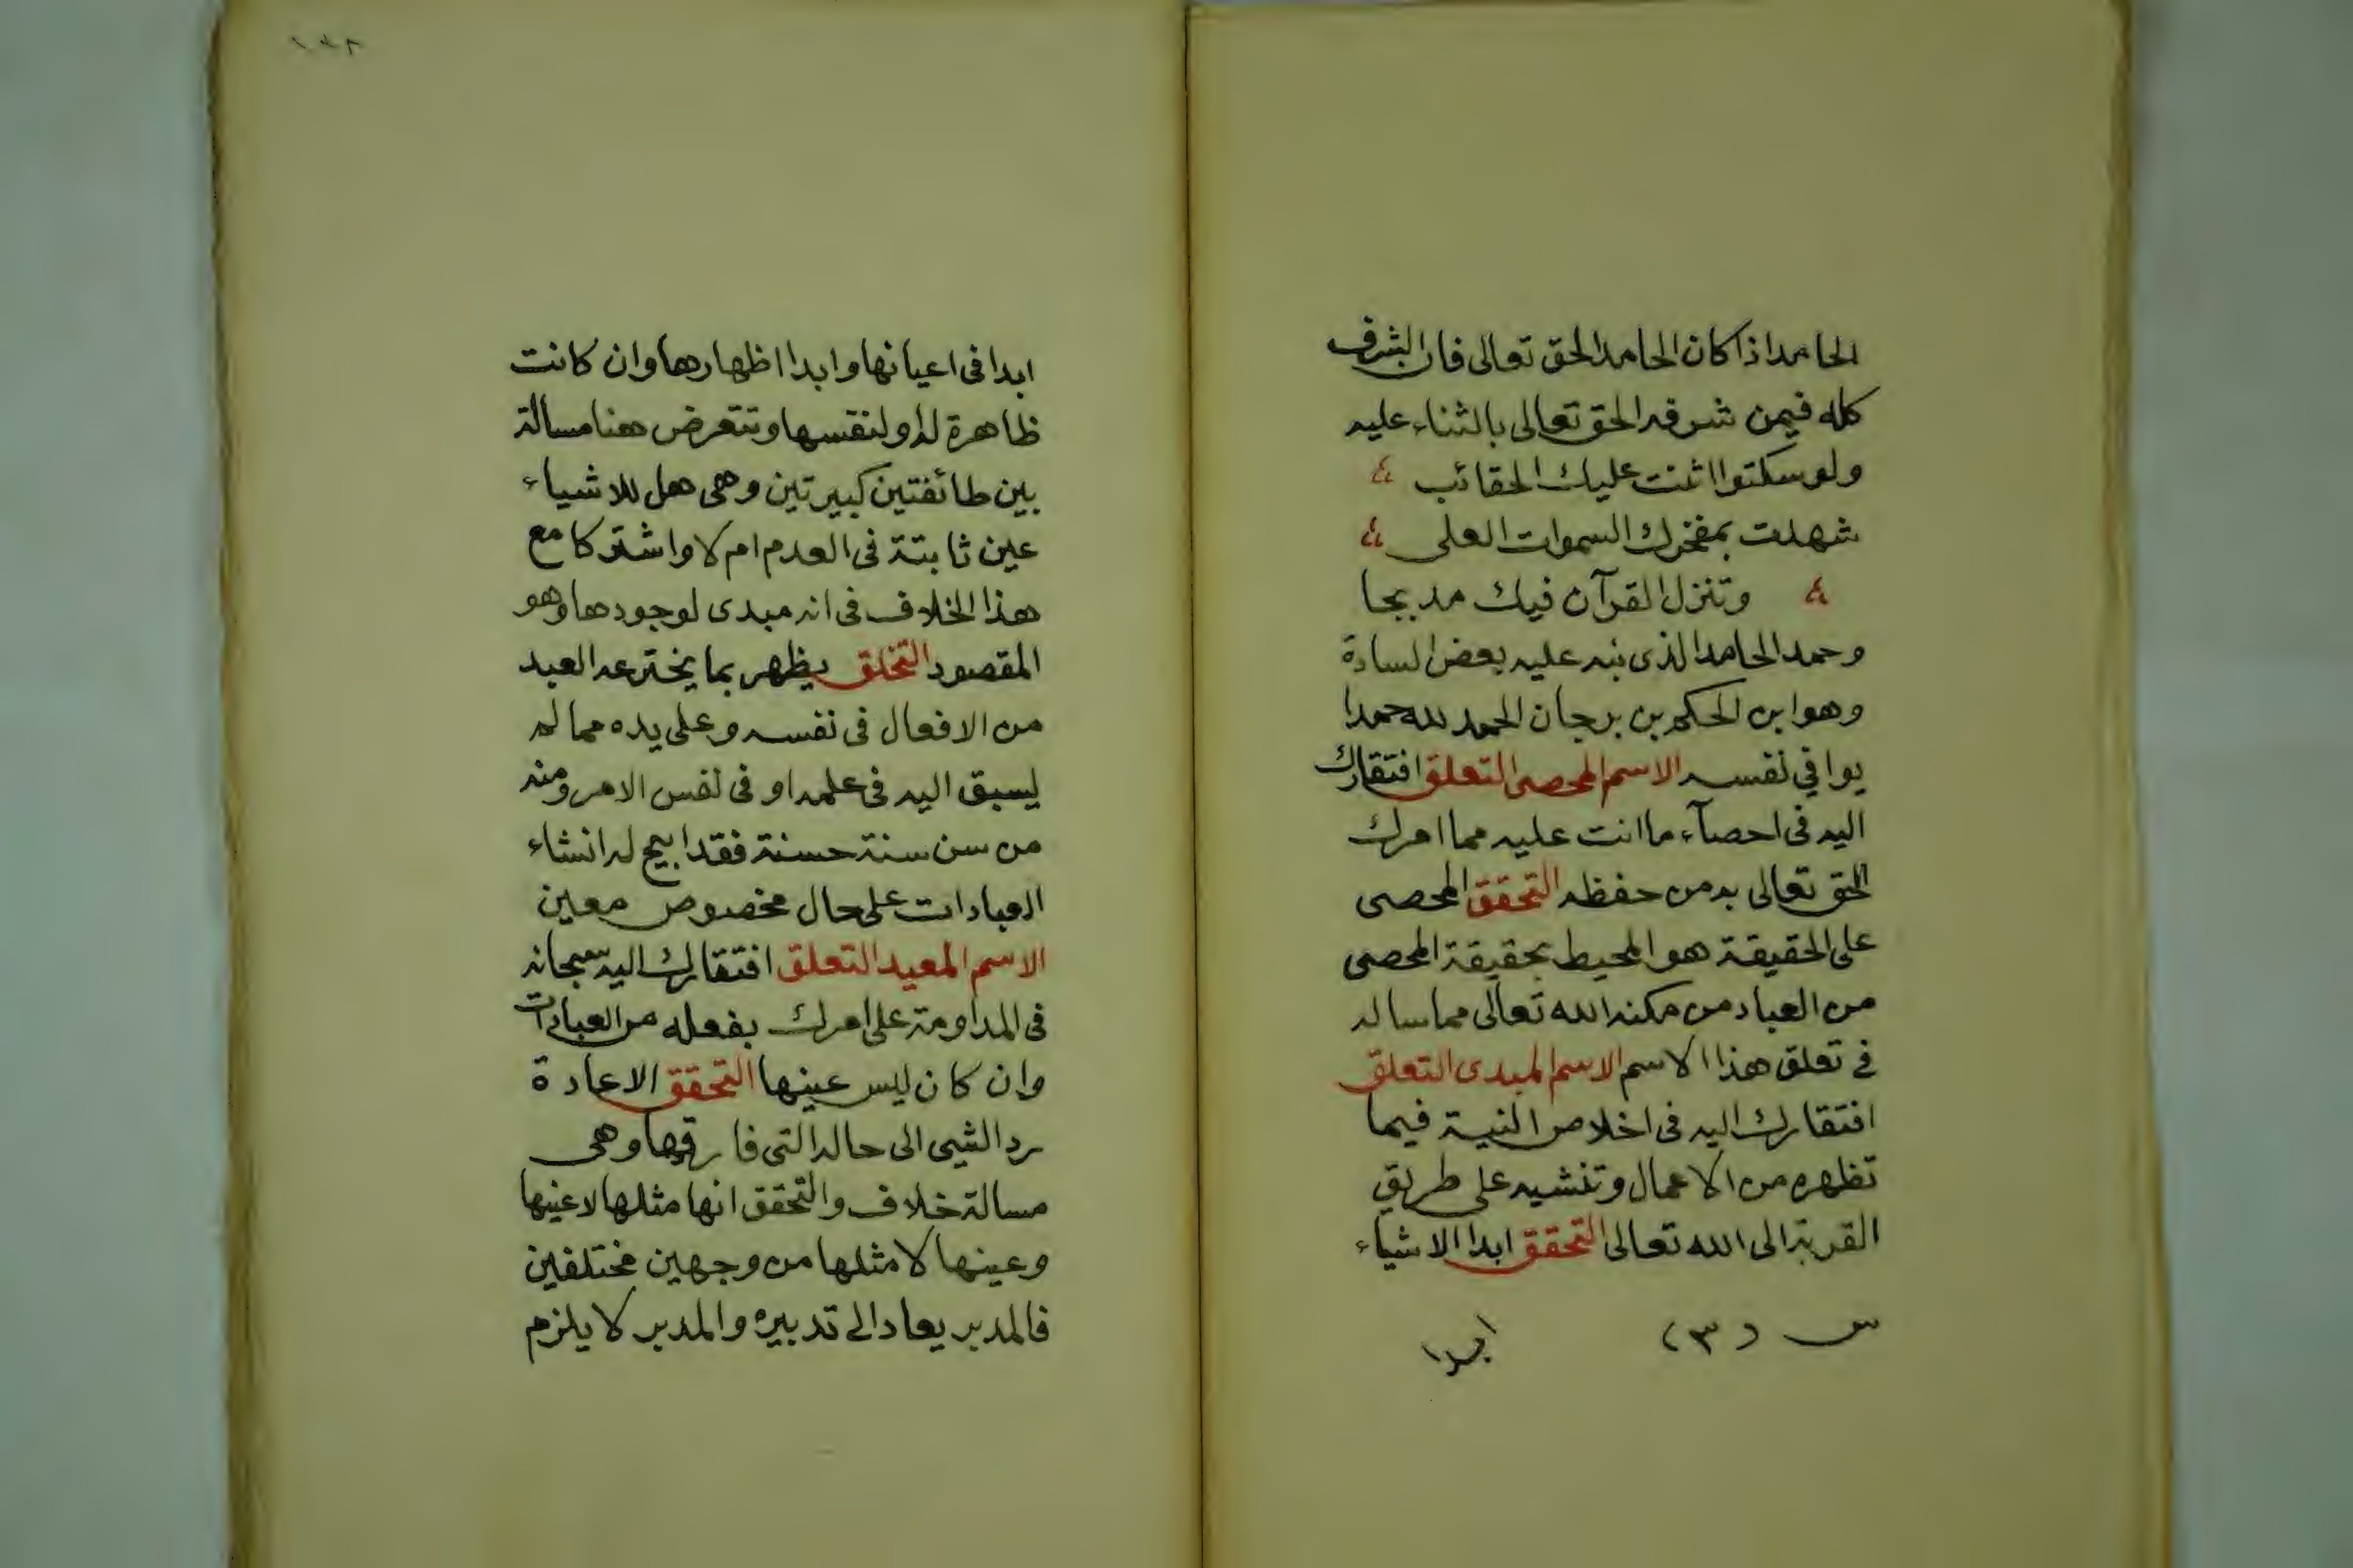 الحامد اذا كان الحامد الحق تعالى فان الشرف
كله فيمن شرفه الحق تعالى بالثناء عليه
ولو سكتوا اثنت عليك الحقائب
شهدت بمفخرك السموات العلى
وتنزل القرآن فيك مديحا
وحمد الحامد الذى نبه عليه بعض السادة
وهو ابن الحكم بن برجان الحمد لله حمدا
يوافي نفسه الاسم المحصى التعلق افتقارك
اليه فى احصآء ما انت عليه مما امرك
الحق تعالى به من حفظه التحقق المحصى
على الحقيقة هو المحيط بحقيقة المحصى
من العباد من مكنه الله تعالى مما ساله
في تعلق هذا الاسم الاسم المبدى التعلق
افتقارك اليه فى اخلاص النية فيما
تظهره من الاعمال وتنشيه على طريق
القربة الى الله تعالى التحقق ابدا الاشياء
س (٣) ابدا
ابدا فى اعيانها وابدا اظهارها وان كانت
ظاهرة له ولنفسها وتتعرض هنا مسالة
بين طائفتين كبيرتين وهى هل للاشياء
عين ثابتة فى العدم ام لا واشتركا مع
هذا الخلاف فى انه مبدى لوجودها وهو
المقصود التخلق يظهر بما يخترعه العبد
من الافعال فى نفسه وعلى يده مما لم
يسبق اليه فى علمه او فى نفس الامر ومنه
من سن سنة حسنة فقد ابيح له انشاء
العبادات على حال مخصوص معين
الاسم المعيد التعلق افتقارك اليه سبحانه
فى المداومة على امرك بفعله من العبادات
وان كان ليس عينها التحقق الاعادة
رد الشيى الى حاله التى فارقها وهى
مسالة خلاف والتحقق انها مثلها لا عينها
وعينها لا مثلها من وجهين مختلفين
فالمدبر يعاد الى تدبيره والمدبر لا يلزم